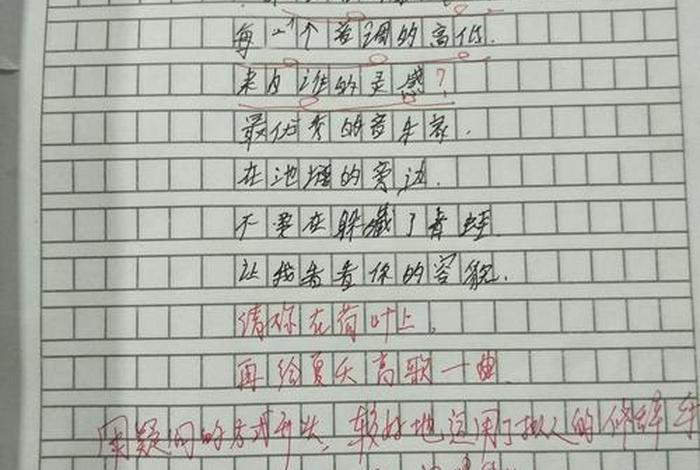 每一个音调的高低.
来自谁的灵感?
最优秀的音乐家,
在池塘的旁边.
不要在躲藏了青蛙
让我看看你的容貌.
请你在荷叶上,
再给夏天高歌一曲.
用疑问的方式开头,较好地运用了拟人的修辞手